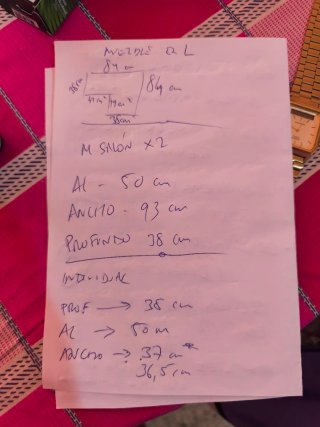 MUEBLE EN L
84 cm
38cm
84 cm
38cm
M SILLÓN X2
AL - 50 cm
ANCHO - 93 cm
PROFUNDO 38 cm
INDIVIDUAL
PROF → 38 cm
AL → 50 m
ANCHO → 37 cm
36,5 cm